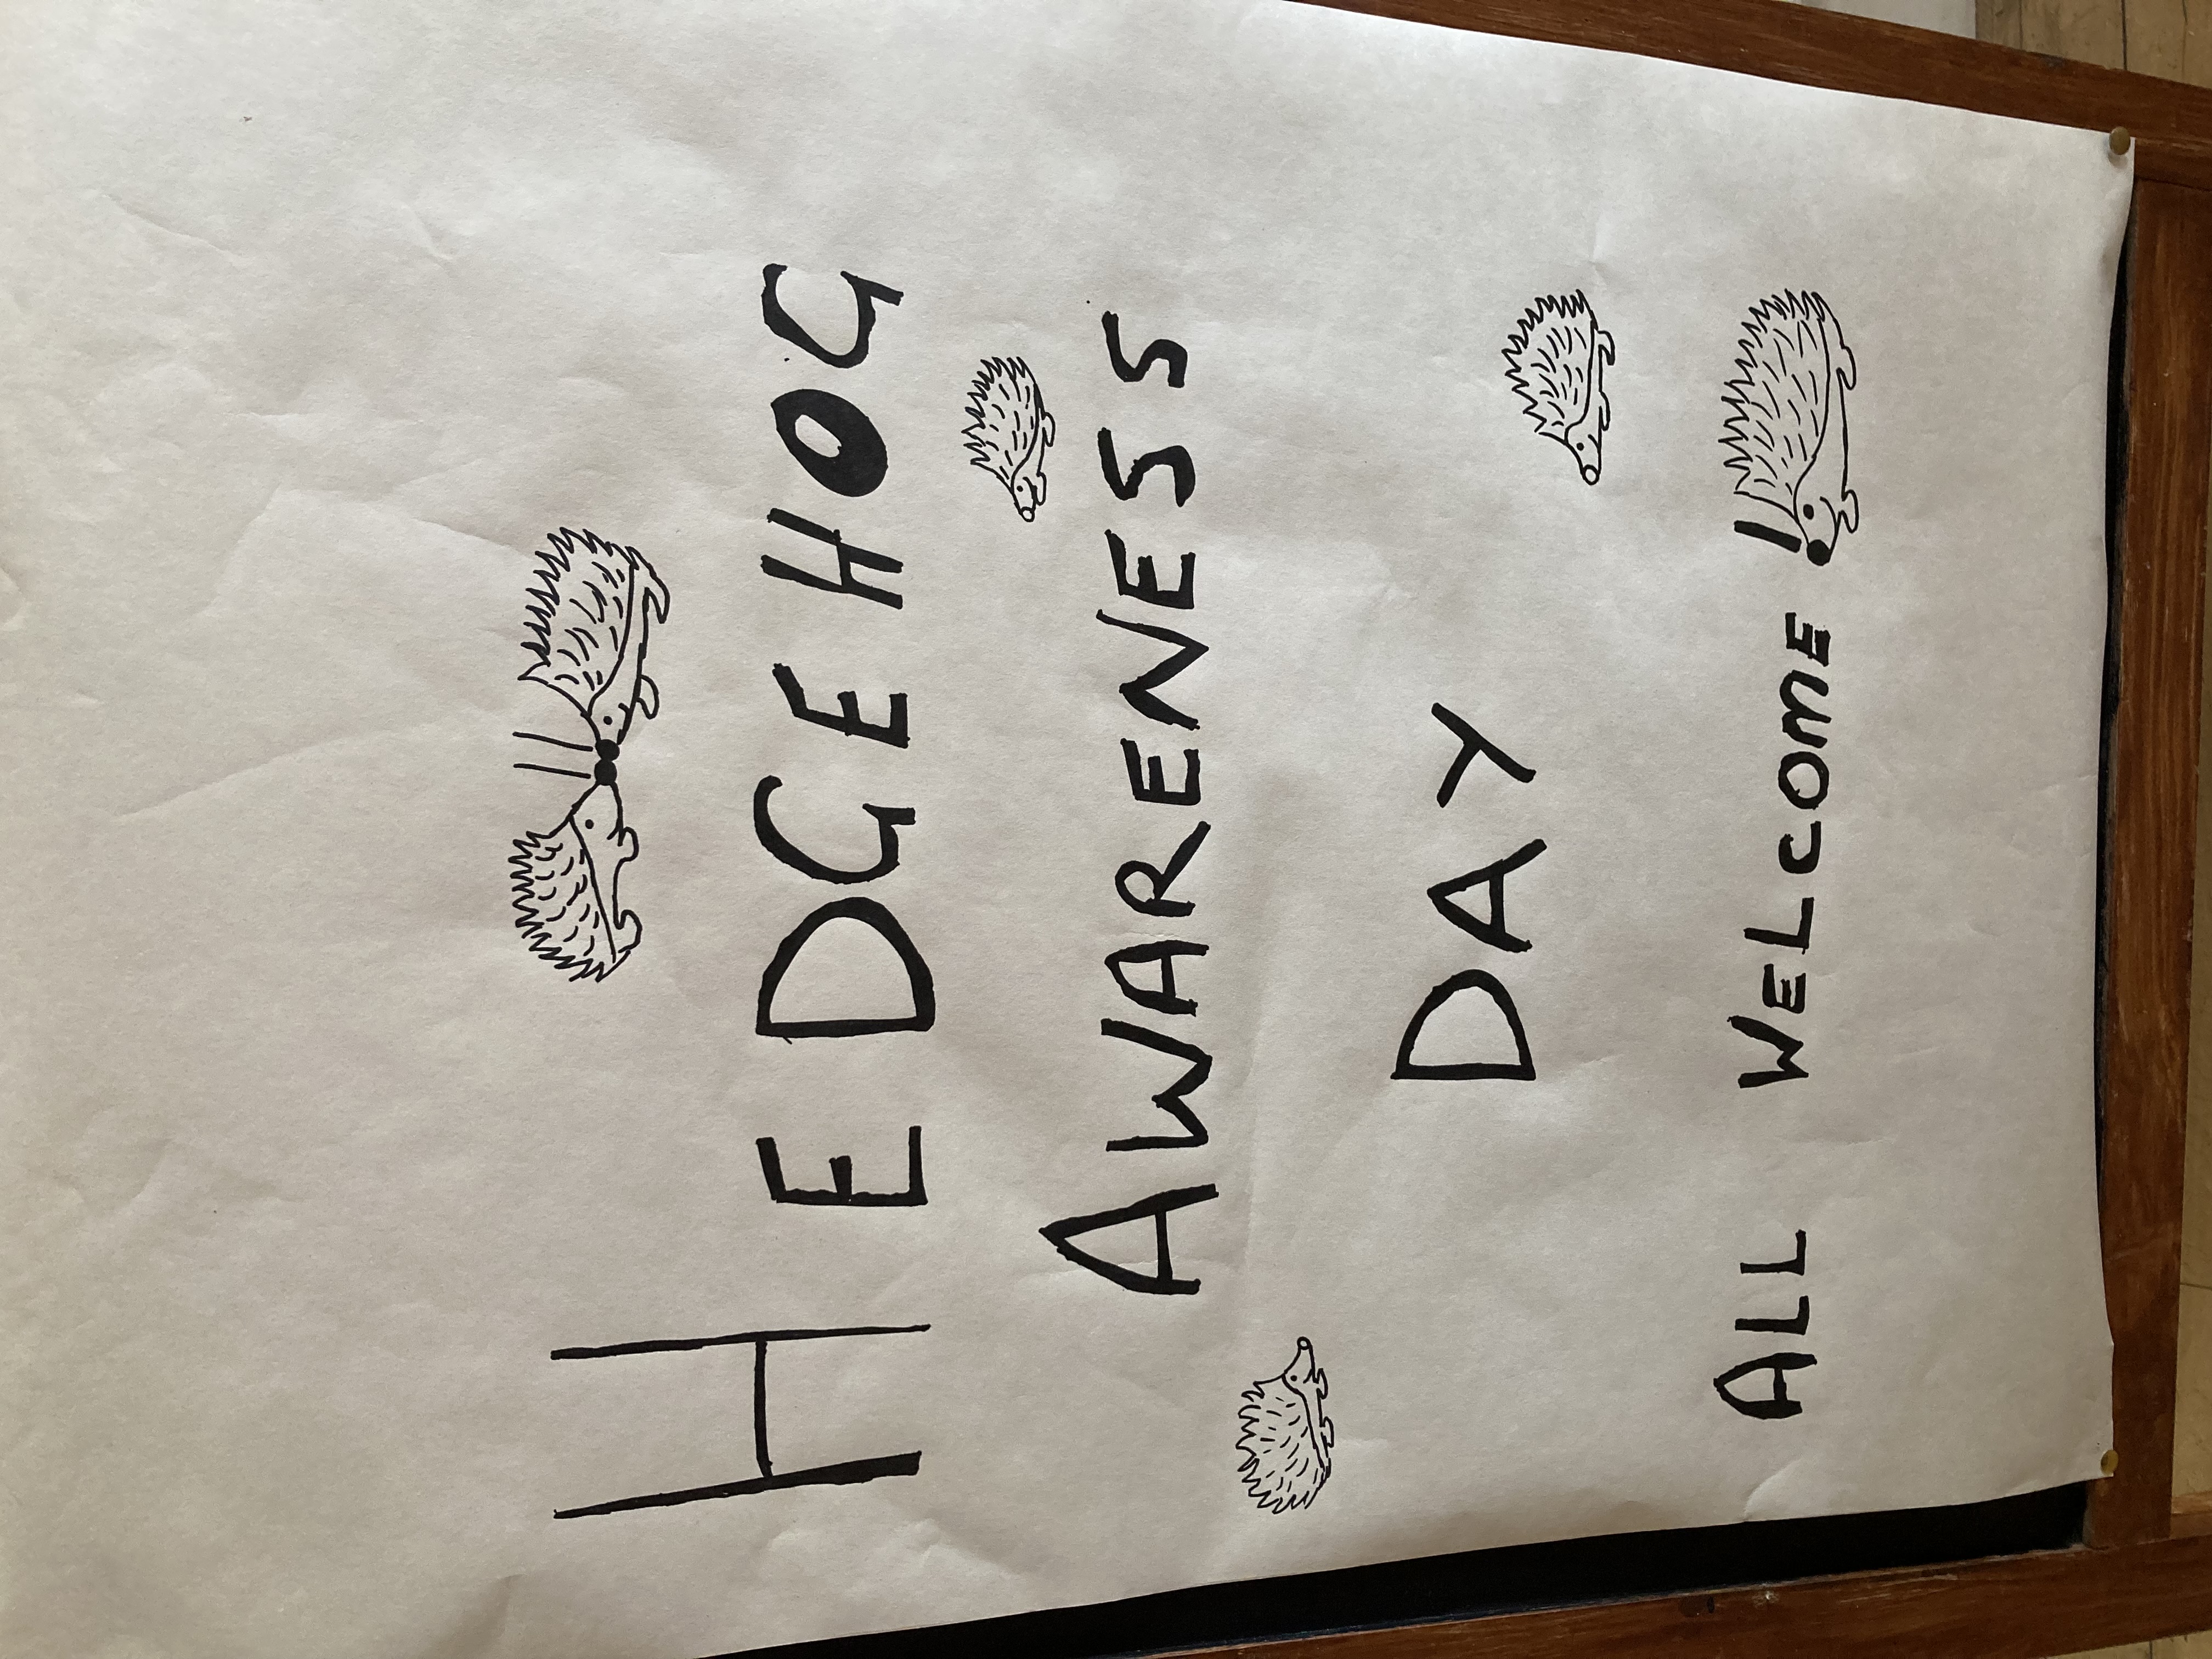 HEDGEHOG
AWARENESS
DAY
ALL WELCOME!